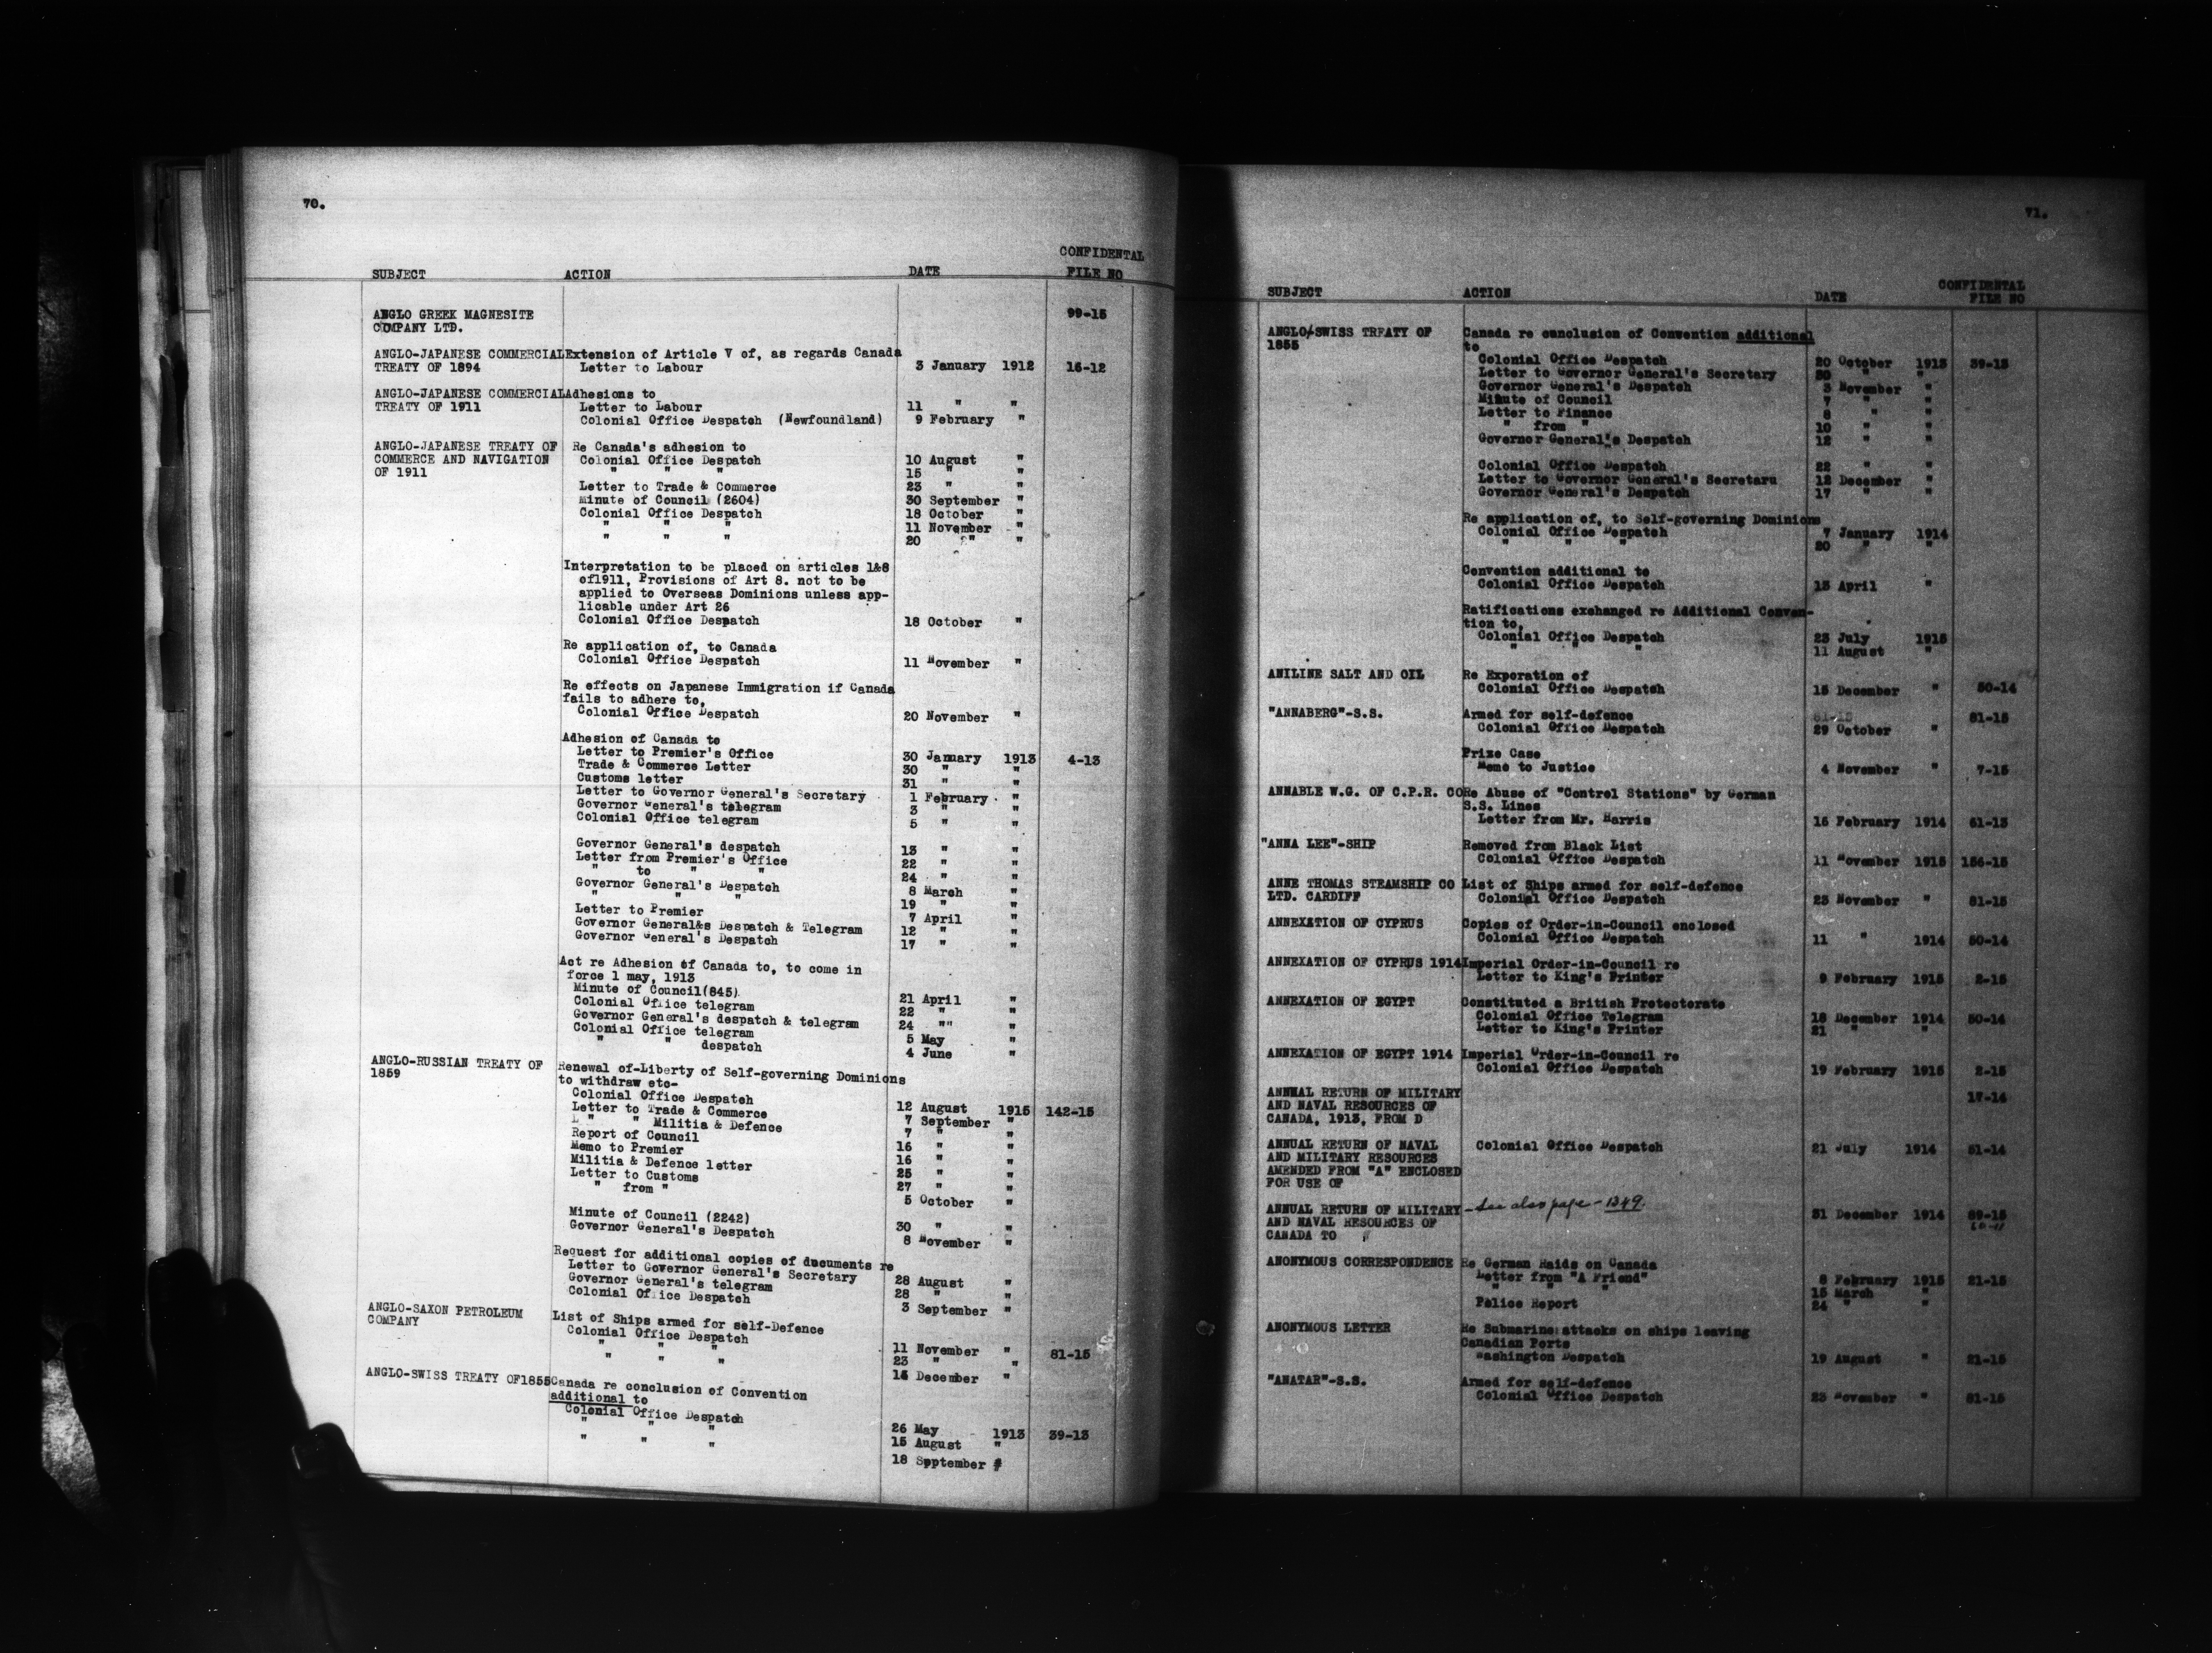 70.
CONFIDENTAL
SUBJECT ACTION DATE FILE NO
ANGLO GREEK MAGNESITE 99-15
COMPANY LTD.
ANGLO-JAPANESE COMMERCIAL Extension of Article V of, as regards Canada
TREATY OF 1894 Letter to Labour 3 January 1912 16-12
ANGLO-JAPANESE COMMERCIAL Adhesions to
TREATY OF 1911 Letter to Labour 11 " "
Colonial Office Despatch (Newfoundland) 9 February "
ANGLO-JAPANESE TREATY OF Re Canada's adhesion to
COMMERCE AND NAVIGATION Colonial Office Despatch 10 August "
OF 1911 " " " 15 " "
Letter to Trade & Commerce 23 " "
Minute of Council (2604) 30 September "
Colonial Office Despatch 18 October "
" " " 11 November "
" " " 20 " "
Interpretation to be placed on articles 1&8
of1911, Provisions of Art 8. not to be
applied to Overseas Dominions unless app-
licable under Art 26
Colonial Office Despatch 18 October "
Re application of, to Canada
Colonial Office Despatch 11 November "
Re effects on Japanese Immigration if Canada
fails to adhere to,
Colonial Office Despatch 20 November "
Adhesion of Canada to
Letter to Premier's Office 30 January 1913 4-13
Trade & Commerce Letter 30 " "
Customs letter 31 " "
Letter to Governor General's Secretary 1 February "
Governor General's telegram 3 " "
Colonial Office telegram 5 " "
Governor General's despatch 13 " "
Letter from Premier's Office 22 " "
" to " " 24 " "
Governor General's Despatch 8 March "
" " " 19 " "
Letter to Premier 7 April "
Governor General&s Despatch & Telegram 12 " "
Governor General's Despatch 17 " "
Act re Adhesion of Canada to, to come in
force 1 may, 1913
Minute of Council(845) 21 April "
Colonial Office telegram 22 " "
Governor General's despatch & telegram 24 "" "
Colonial Office telegram 5 May "
" " despatch 4 June "
ANGLO-RUSSIAN TREATY OF Renewal of-Liberty of Self-governing Dominions
1859 to withdraw etc-
Colonial Office Despatch 12 August 1915 142-15
Letter to Trade & Commerce 7 September "
L " " Militia & Defence 7 " "
Report of Council 16 " "
Memo to Premier 16 " "
Militia & Defence letter 25 " "
Letter to Customs 27 " "
" from " 5 October "
Minute of Council (2242) 30 " "
Governor General's Despatch 8 November "
Request for additional copies of documents re
Letter to Governor General's Secretary 28 August "
Governor General's telegram 28 " "
Colonial Office Despatch 3 September "
ANGLO-SAXON PETROLEUM List of Ships armed for self-Defence
COMPANY Colonial Office Despatch 11 November " 81-15
" " " 23 " "
" " " 15 December "
ANGLO-SWISS TREATY OF1855 Canada re conclusion of Convention
additional to
Colonial Office Despatch 26 May 1913 39-13
" " " 15 August "
" " " 18 Spptember #
71.
CONFIDENTAL
SUBJECT ACTION DATE FILE NO
ANGLO/SWISS TREATY OF Canada re conclusion of Convention additional
1855 to
Colonial Office Despatch 20 October 1913 39-13
Letter to Governor General's Secretary 30 " "
Governor General's Despatch 3 November "
Minute of Council 7 " "
Letter to Finance 8 " "
" from " 10 " "
Governor General's Despatch 12 " "
Colonial Office Despatch 22 " "
Letter to Governor General's Secretaru 12 December "
Governor General's Despatch 17 " "
Re application of, to Self-governing Dominions
Colonial Office Despatch 7 January 1914
" " " 20 " "
Convention additional to
Colonial Office Despatch 13 April "
Ratifications exchanged re Additional Conven-
tion to,
Colonial Office Despatch 23 July 1915
" " " 11 August "
ANILINE SALT AND OIL Re Exporation of
Colonial Office Despatch 15 December " 50-14
"ANNABERG"-S.S. Armed for self-defence 81-15
Colonial Office Despatch 29 October "
Prize Case
Memo to Justice 4 November " 7-15
ANNABLE W.G. OF C.P.R. CO Re Abuse of "Control Stations" by German
S.S. Lines
Letter from Mr. Harris 16 February 1914 61-13
"ANNA LEE"-SHIP Removed from Black List
Colonial Office Despatch 11 November 1915 156-15
ANNE THOMAS STEAMSHIP CO List of Ships armed for self-defence
LTD. CARDIFF Colonial Office Despatch 23 November " 81-15
ANNEXATION OF CYPRUS Copies of Order-in-Council enclosed
Colonial Office Despatch 11 " 1914 50-14
ANNEXATION OF CYPRUS 1914 Imperial Order-in-Council re
Letter to King's Printer 9 February 1915 2-15
ANNEXATION OF EGYPT Constituted a British Protectorate
Colonial Office Telegram 18 December 1914 50-14
Letter to King's Printer 21 " "
ANNEXATION OF EGYPT 1914 Imperial Order-in-Council re
Colonial Office Despatch 19 February 1915 2-15
ANNUAL RETURN OF MILITARY 17-14
AND NAVAL RESOURCES OF
CANADA, 1913, FROM D
ANNUAL RETURN OF NAVAL Colonial Office Despatch 21 July 1914 51-14
AND MILITARY RESOURCES
AMENDED FROM "A" ENCLOSED
FOR USE OF
ANNUAL RETURN OF MILITARY - See also page - 1349.
AND NAVAL RESOURCES OF 31 December 1914 89-15
CANADA TO
ANONYMOUS CORRESPONDENCE Re German Raids on Canada
Letter from "A Friend" 8 February 1915 21-15
" " " 15 March "
Police Report 24 " "
ANONYMOUS LETTER Re Submarine attacks on ships leaving
Canadian Ports
Washington Despatch 19 August " 21-15
"ANATAR"-S.S. Armed for self-defence
Colonial Office Despatch 23 November " 81-15